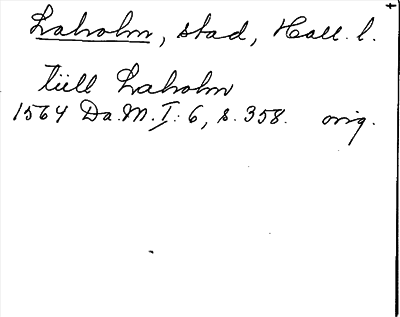 Laholm, stad, Hall. l.
tiill Laholm
1564 Da. M. I: 6, s. 358. orig.